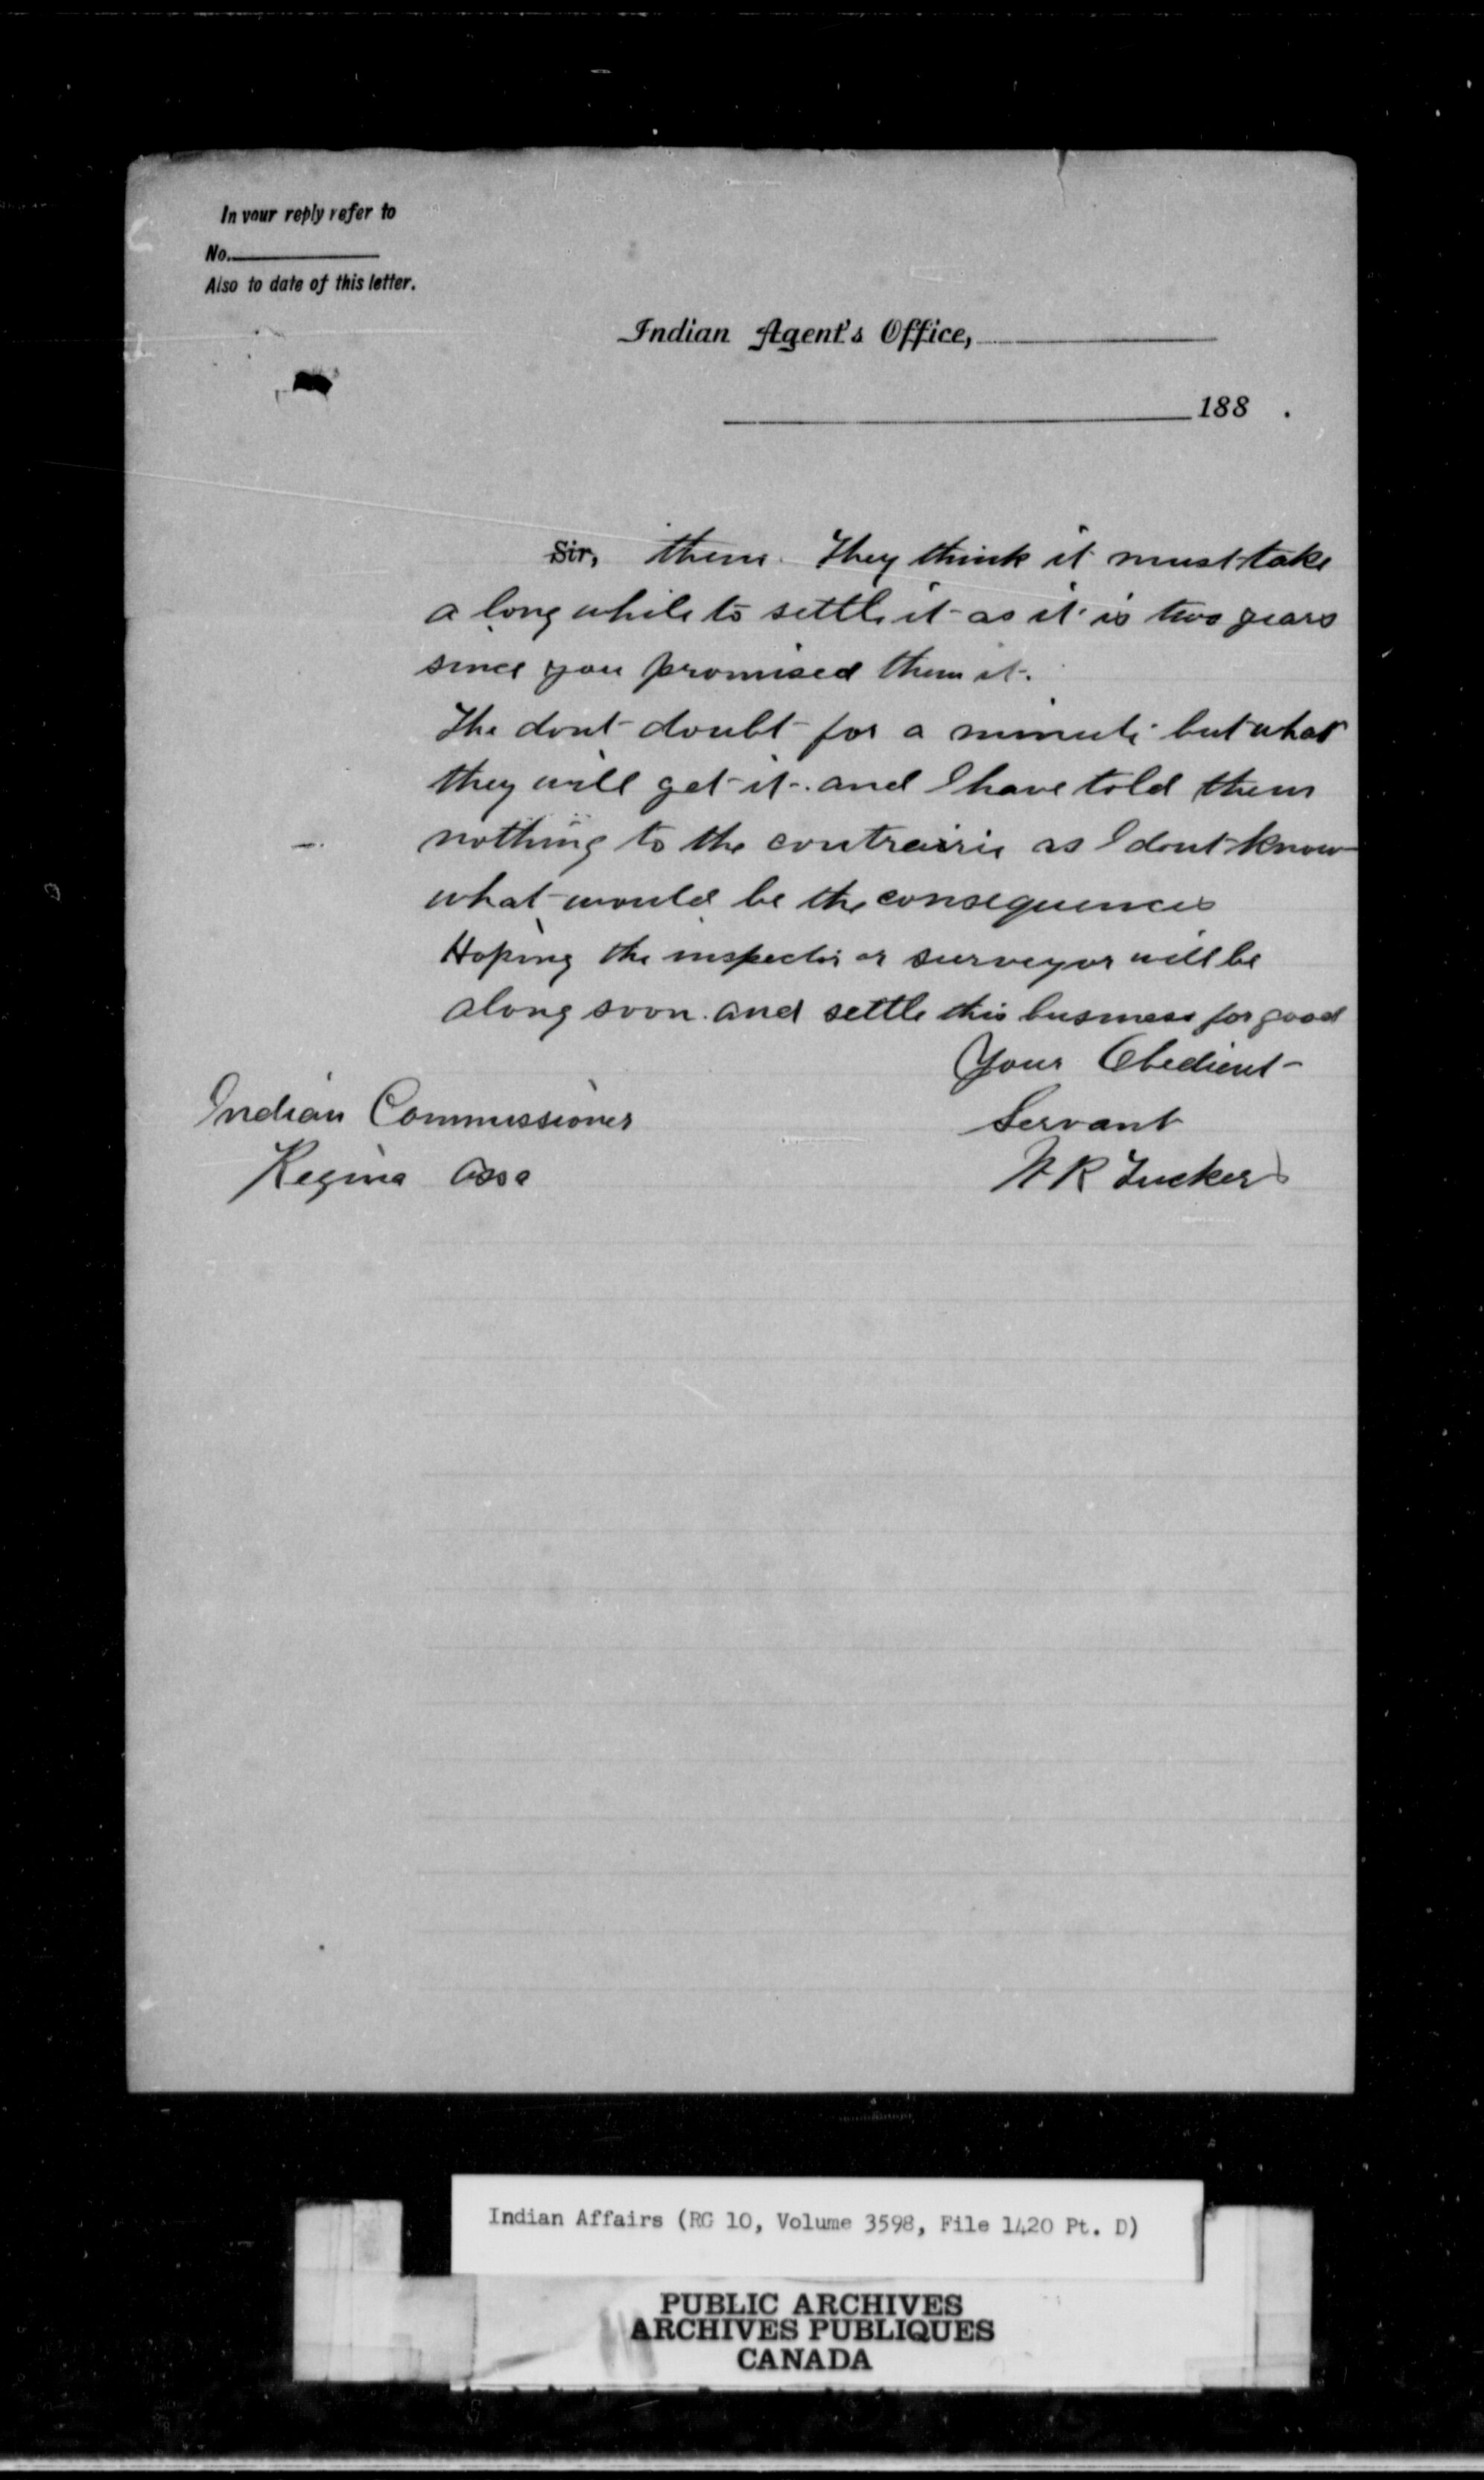 In your reply refer to
No.
Also to date of this letter.
Indian Agent's Office,
188 .
Sir, them. They think it must take
a long while to settle it as it is two years
since you promised them it.
The dont doubt for a minute but what
they will get it. and I have told them
nothing to the contrairie as I dont know
what would be the consequences
Hoping the inspector or surveyor will be
along soon. and settle this business for good
Your Obedient
Servant
Indian Commissioner
Regina Assa
R Tucker
Indian Affairs (RG 10, Volume 3598, File 1420 Pt. D)
PUBLIC ARCHIVES
ARCHIVES PUBLIQUES
CANADA